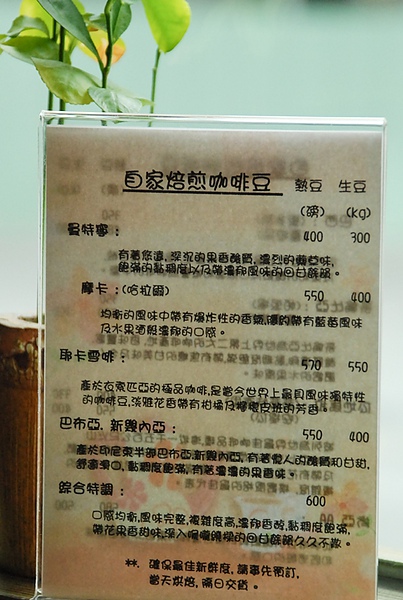 自家焙煎咖啡豆 熟豆 生豆
(磅) (kg)
曼特寧: 400 300
有著悠遠,深沉的果香酸質,濃烈的藥草味,
飽滿的黏稠度以及帶濃郁風味的回甘餘韻。
摩卡:(哈拉爾) 550 400
均衡的風味中帶有爆炸性的香氣,優的帶有藍莓風味
及水果酒般濃郁的口感。
耶卡雪啡: 570 550
產於衣索匹亞的極品咖啡,是當今世界上最具風味獨特性
的咖啡豆,淡雅花香帶有柑橘及檸檬皮班的芳香。
巴布亞.新幾內亞: 550 400
產於印尼東半部巴布亞.新幾內亞,有著驚人的酸質和甘甜,
舒暢滑口,黏稠度飽滿,有著濃濃的果香味。
綜合特調: 600
口感均衡,風味完整,複雜度高,濃郁香醇,黏稠度飽滿,
帶花果香甜味,深入喉嚨餵糗的回甘餘韻久久不散。
**. 確保最佳新鮮度,請事先預訂,
當天烘焙,隔日交貨。